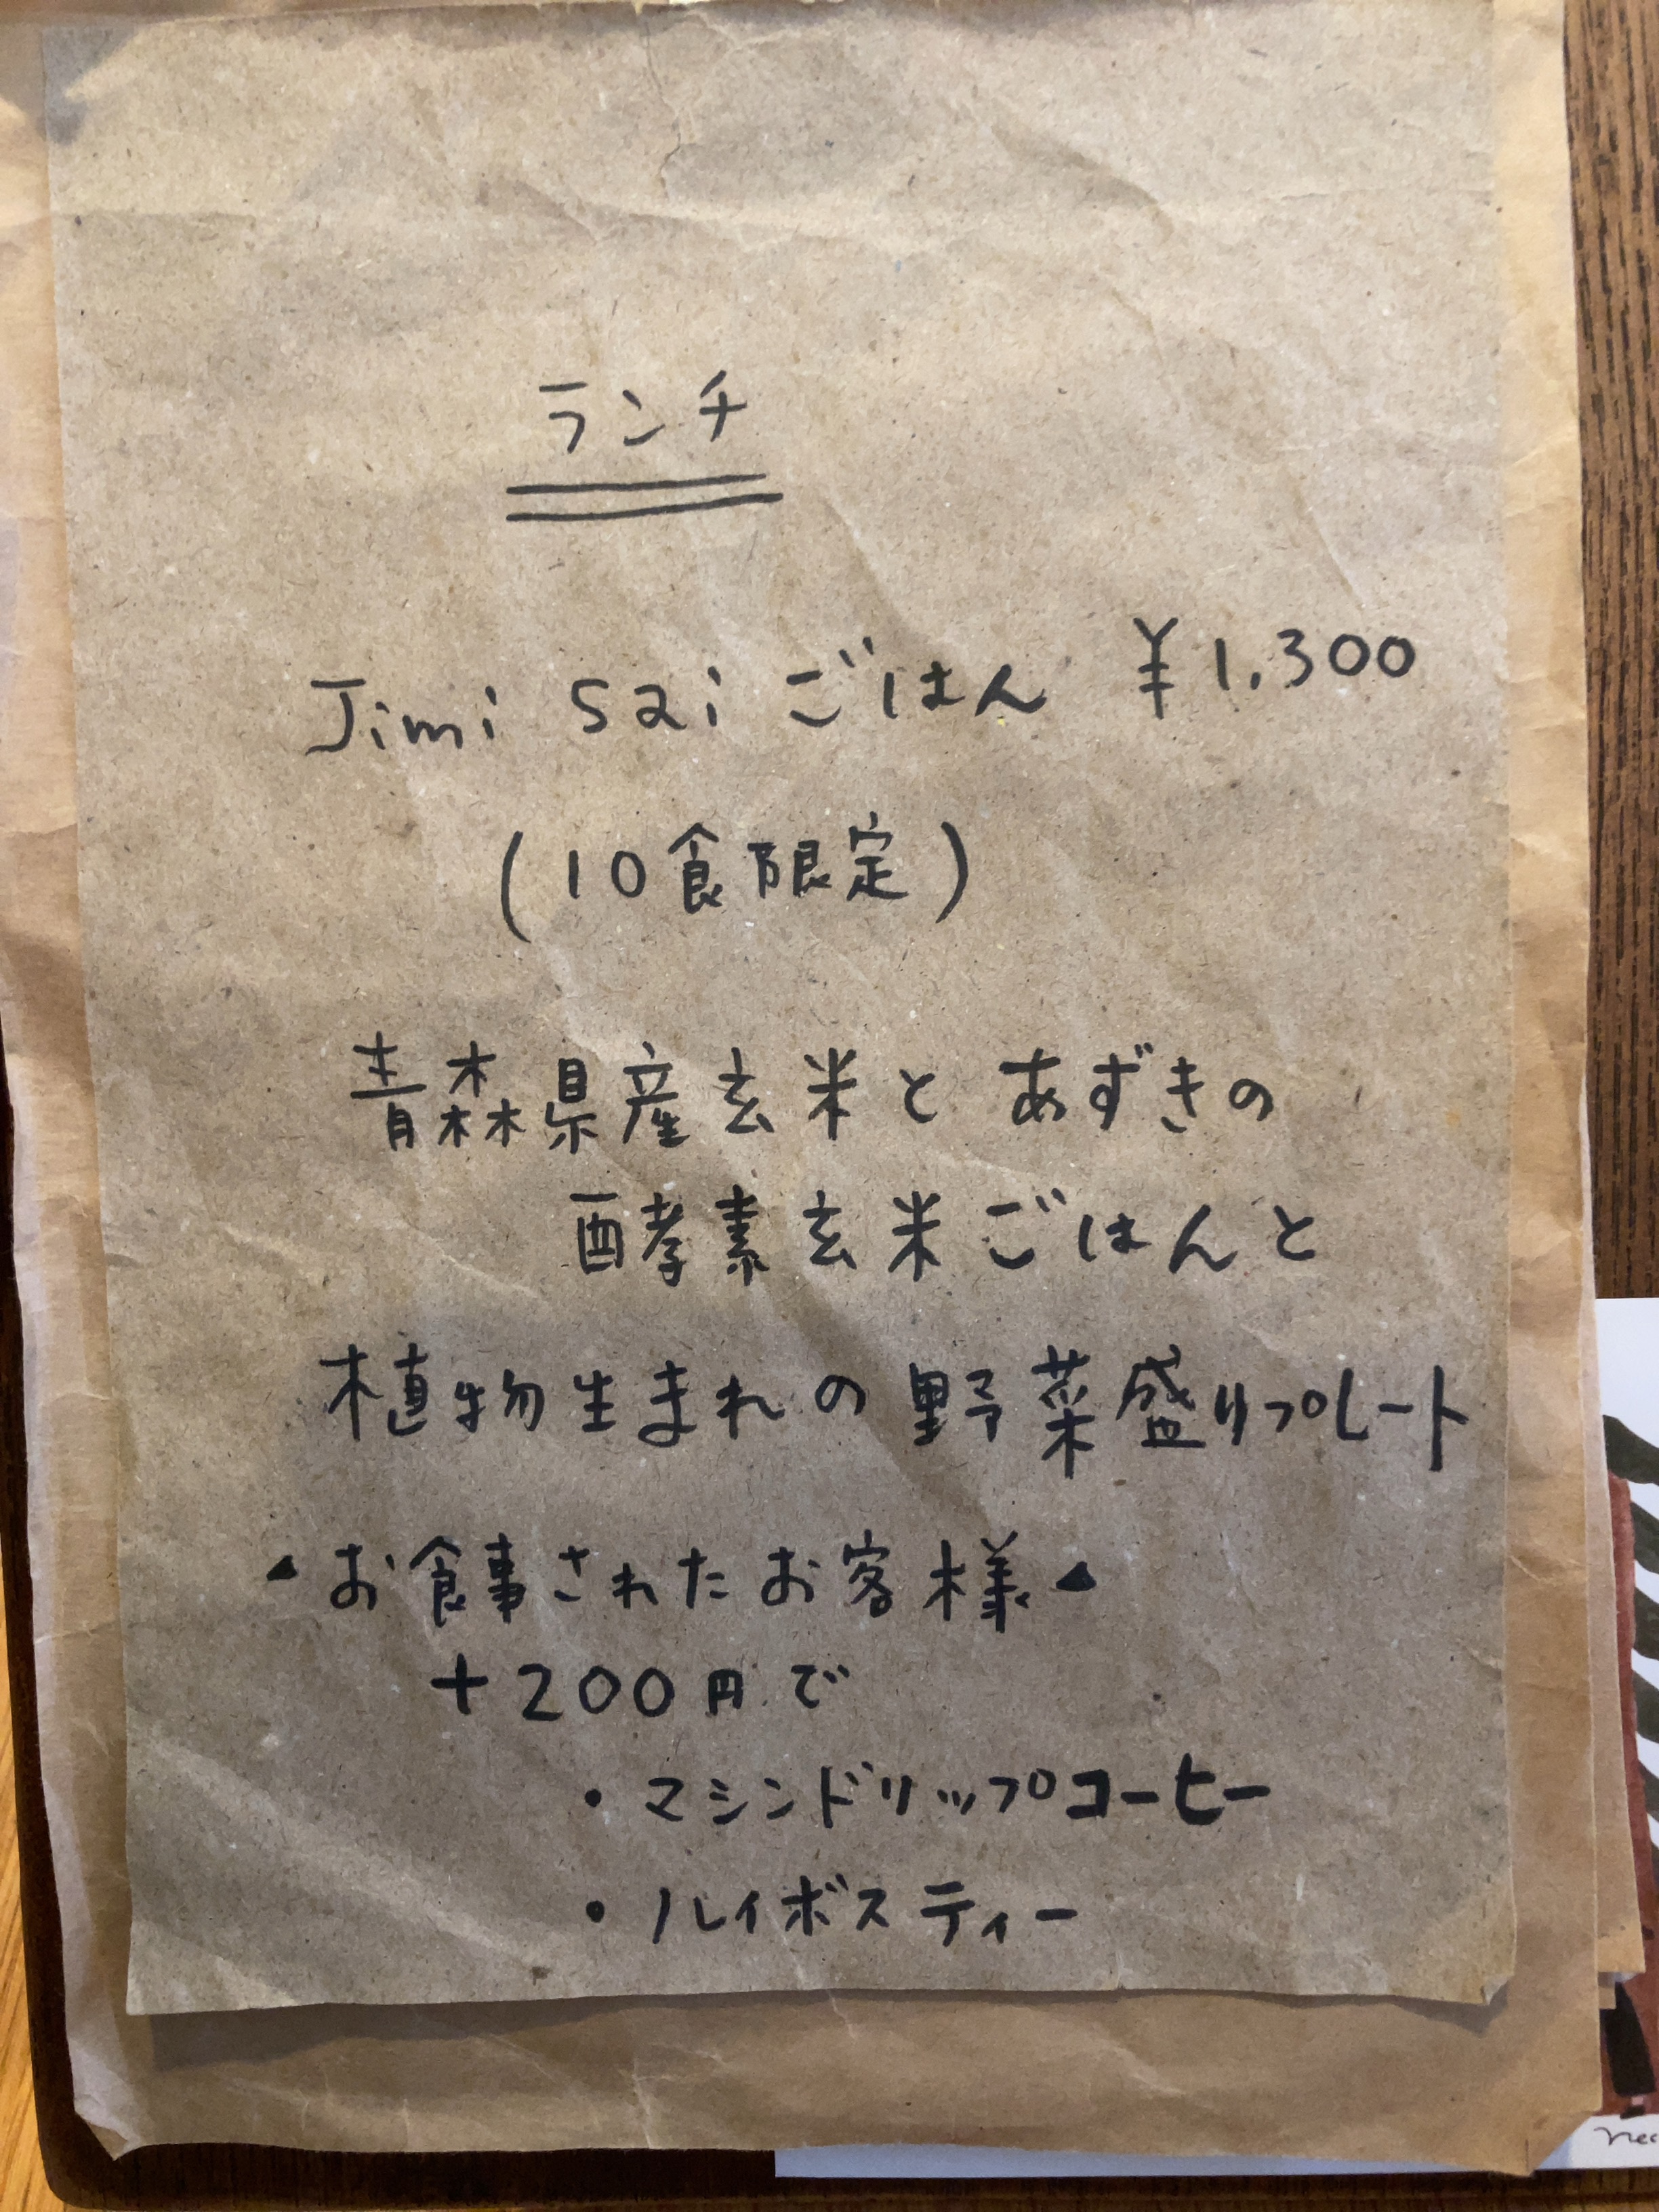 ランチ
Jimi sai ごはん ¥1,300
(10食限定)
青森県産玄米とあずきの
酵素玄米ごはんと
植物生まれの野菜盛りプレート
▲お食事されたお客様▲
+200円で
・マシンドリップコーヒー
・ルイボスティー